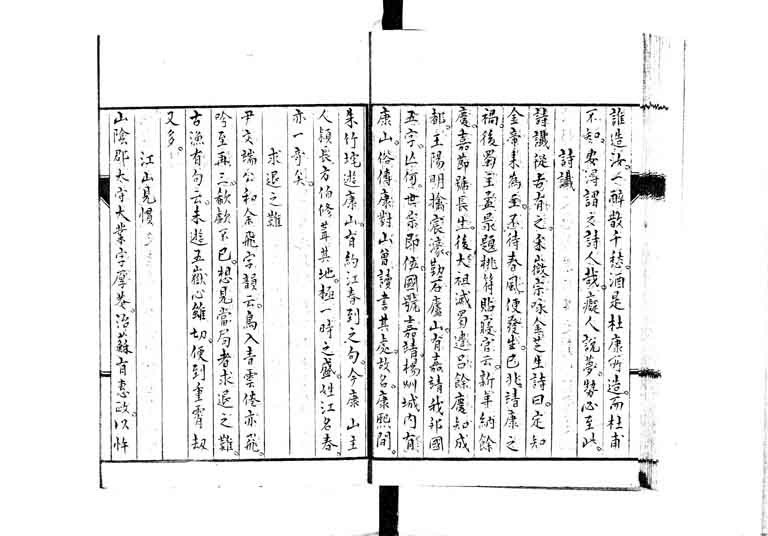 誰造汝。人解散千愁。酒是杜康所造。而杜甫
不知。安得謂之詩人哉。癡人說夢。勢必至此。
詩讖
詩讖從古有之。宋徽宗咏金芝生詩曰。定知
金帝來為主。不待春風便發生。已兆靖康之
禍。後蜀主孟昶題桃符貼寢宮云。新年納餘
慶。嘉節號長生。後太祖滅蜀。遣呂餘慶知成
都。王陽明擒宸濠。勒石廬山。有嘉靖我邦國
五字。亡何。世宗即位。國號嘉靖。揚州城内有
康山。俗傳康對山曾讀書其處。故名。康熙間。
朱竹垞遊康山。有約江春到之句。今康山主
人穎長方伯修葺其地。極一時之盛。姓江名春。
亦一奇矣。
求退之難
尹文端公和余飛字韻云。鳥入青雲倦亦飛。
吟至再三。欷歔不已。想見當局者求退之難。
古漁有句云。未遊五嶽心雖切。便到重霄刼
又多。
江山見慣
山陰郡太守大業字厚菴。治蘇有惠政。以忤